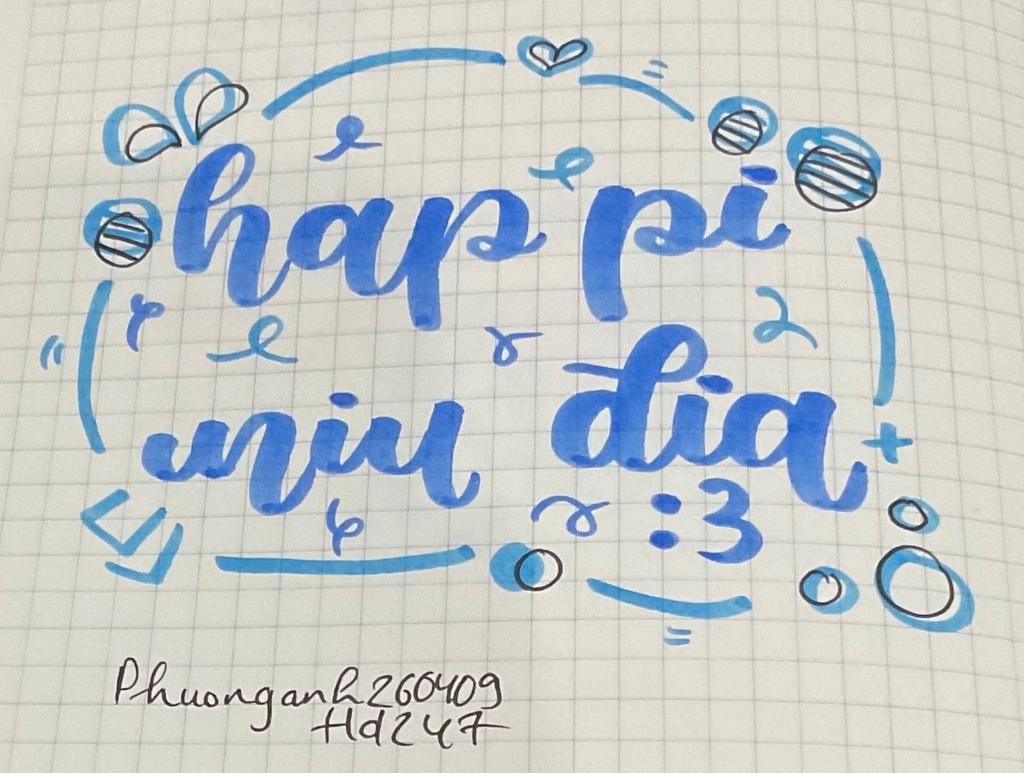 hap pi
niu dia
:3
Phuonganh260409
Hd247